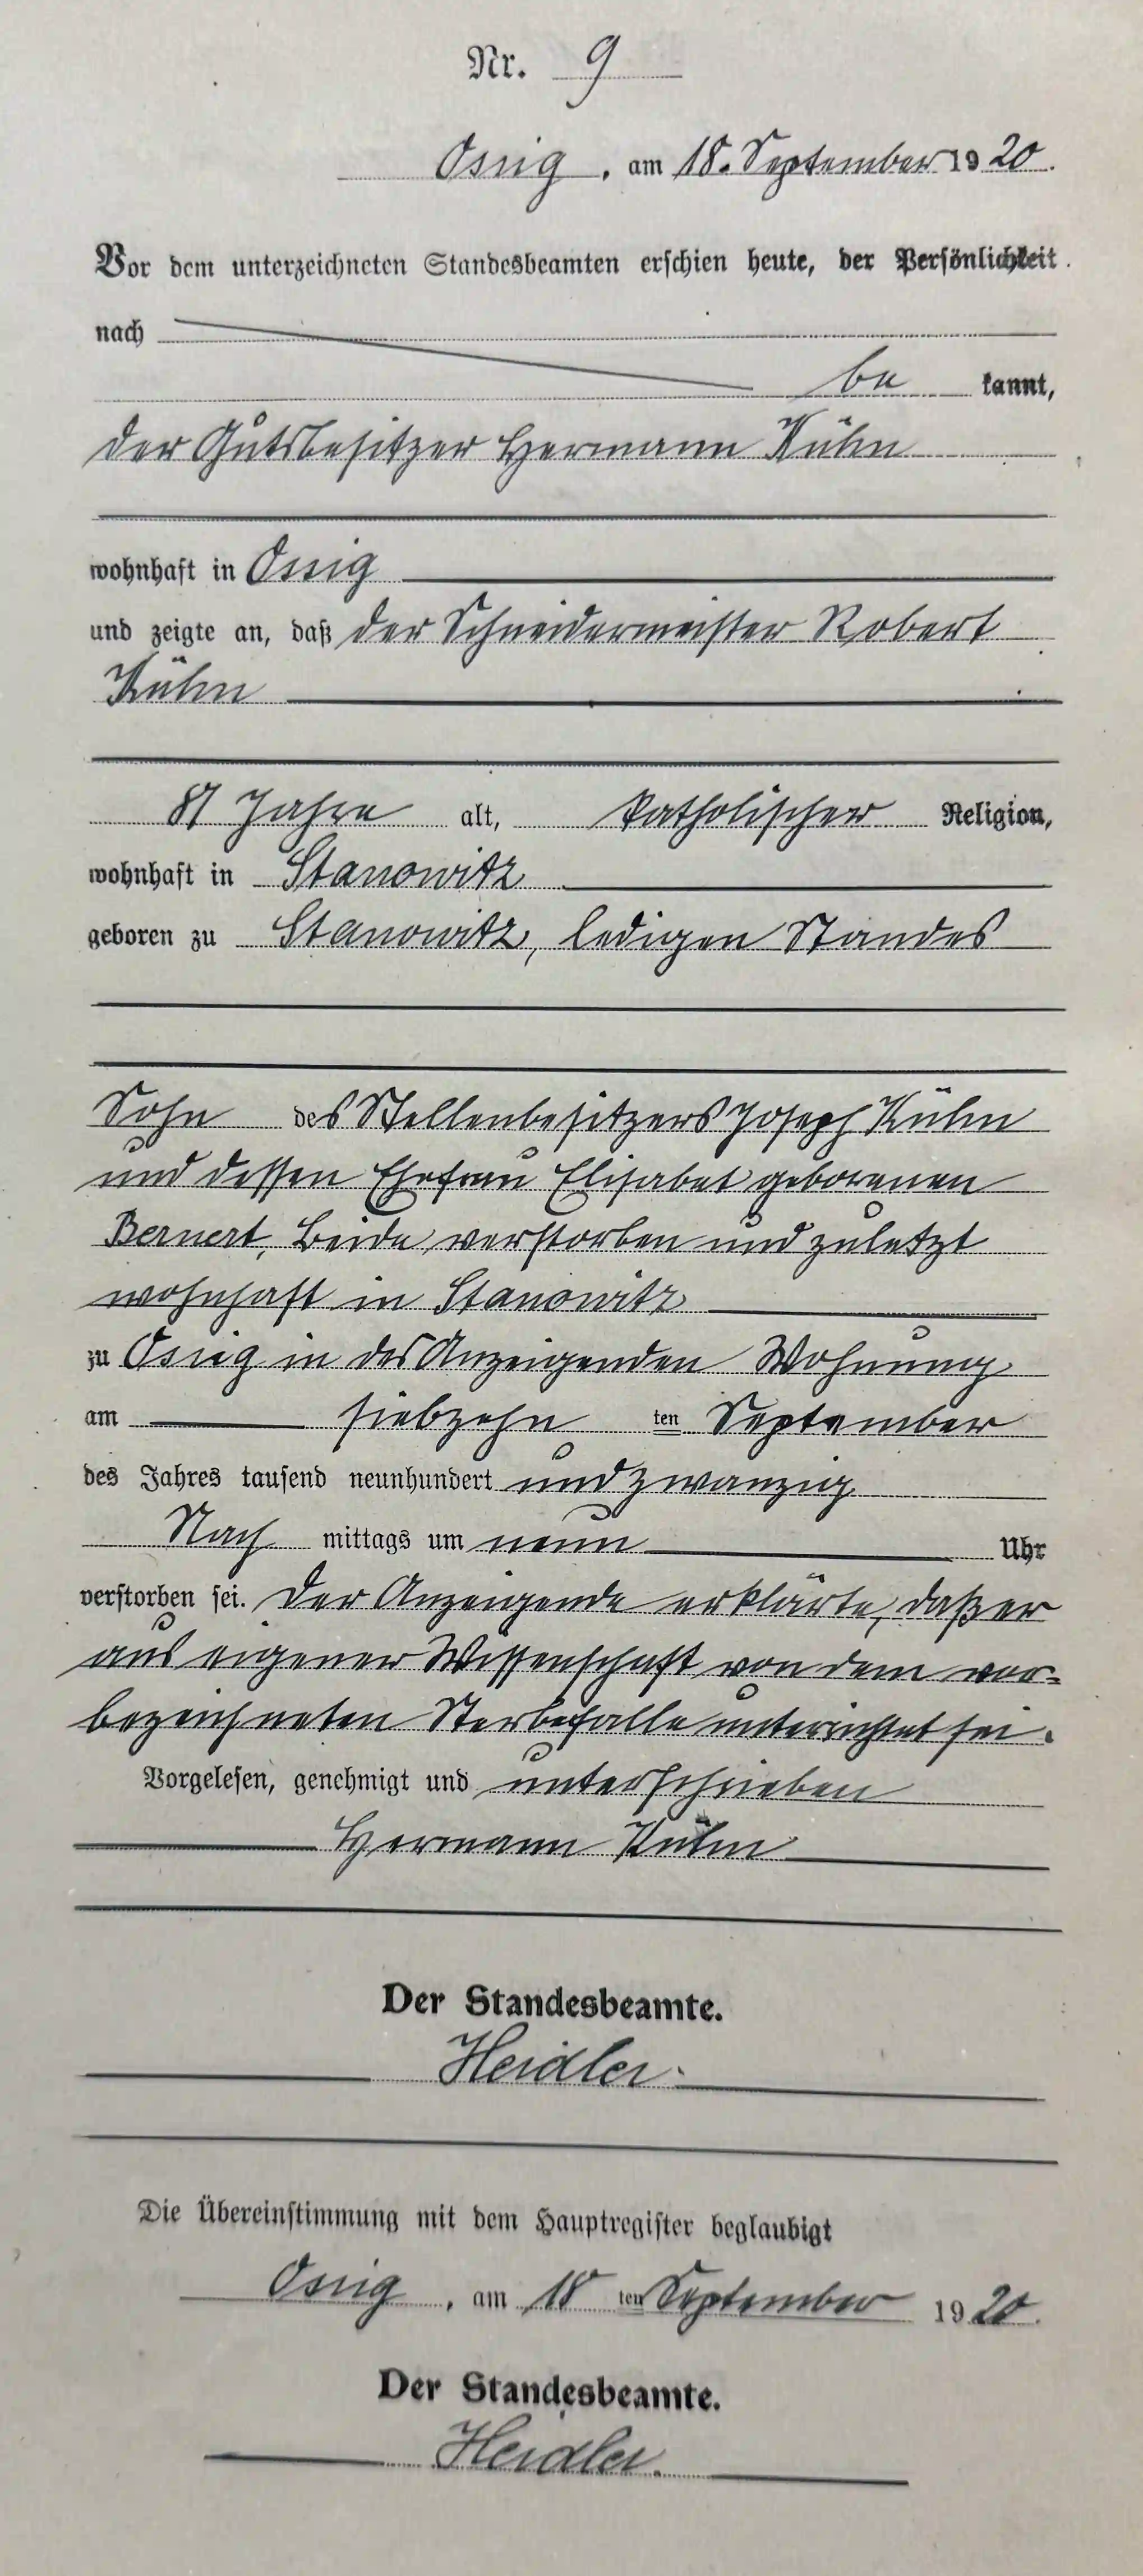 Nr. 9
Ossig, am 18. September 1920.
Vor dem unterzeichneten Standesbeamten erschien heute, der Persönlichkeit
nach
be kannt,
der Gutsbesitzer Hermann Kühn
wohnhaft in Ossig
und zeigte an, daß der Schneidermeister Robert
Kühn
81 Jahre alt, katholischer Religion,
wohnhaft in Stanowitz
geboren zu Stanowitz, ledigen Standes
Sohn des Stellenbesitzers Joseph Kühn
und dessen Ehefrau Elisabet geborenen
Bernert, beide verstorben und zuletzt
wohnhaft in Stanowitz
zu Ossig in des Anzeigenden Wohnung
am siebzehn ten September
des Jahres tausend neunhundert und zwanzig
Nach mittags um neun Uhr
verstorben sei. Der Anzeigende erklärte, daß er
aus eigener Wissenschaft von dem vor-
bezeichneten Sterbefalle unterrichtet sei.
Vorgelesen, genehmigt und unterschrieben
Hermann Kühn
Der Standesbeamte.
Heidler.
Die Übereinstimmung mit dem Hauptregister beglaubigt
Ossig, am 18 ten September 1920.
Der Standesbeamte.
Heidler.